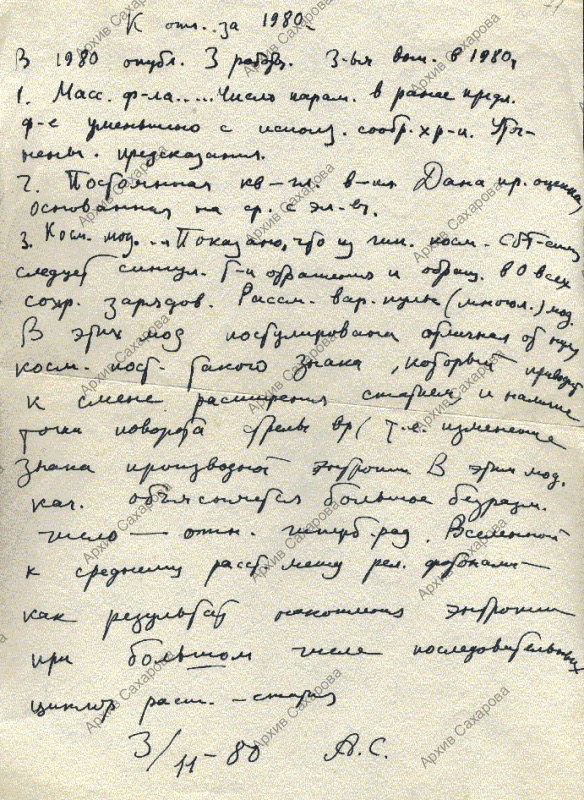 К отч. за 1980 г.
В 1980 опубл. 3 работы. 3-ья вып. в 1980 г.
1. Масс. ф-ла.....Число парам. в ранее предл.
ф-е уменьшено с использ. сообр. хр-и. Уточ-
нены. предсказания.
2. Постоянная кв-гл. в-ия Дана пр. оценка,
основанная на ср. с эл-вз.
3. Косм. мод. .. Показано, что из гип. косм. СРТ-симм
следует сингул. Г-и обращения и обращ. в 0 всех
сохр. зарядов. Рассм. вар. пульс (многол.) мод.
В этих мод постулирована отличная от нуля
косм. пост. такого знака, который приводит
к смене расширения сжатием и наличие
точки поворота стрелы вр (т.е. изменение
знака производной энтропии В этих мод.
кач. объясняется большое безразм.
число — отн. гиперб. рад. Вселенной
к среднему расст. между рел. фотонами —
как результат накопления энтропии
при большом числе последовательных
циклов расш. - сжатия
3/11-80 А.С.